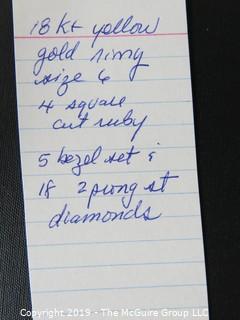 18 kt yellow
gold ring
size 6
4 square
cut ruby
5 bezel set &
18 2 prong st
diamonds
Copyright 2019 - The McGuire Group LLC